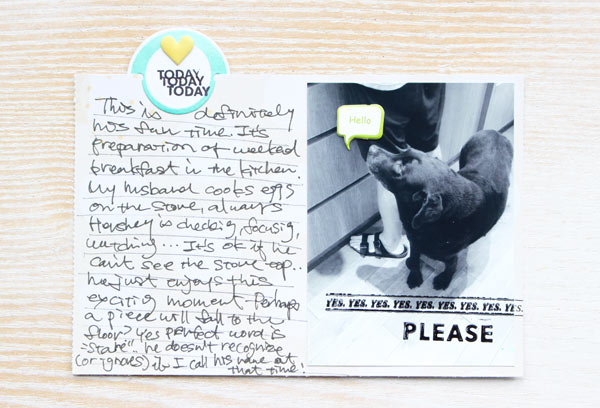 TODAY
TODAY
TODAY
This is definitely
his fun time. It's
preparation of weeked
breakfast in the kitchen.
My husband cooks eggs
on the stove, always
Harshey is checking, focusig,
watching... It's ok if he
can't see the stove top..
he just enjoys this
exciting moment. Perhaps
a piece will fall to the
floor? Yes perfect word is
"stare".. he doesn't recognize
(or ignores) if I call his name at
that time!
Hello
YES. YES. YES. YES. YES. YES. YES. YES. YES.
PLEASE